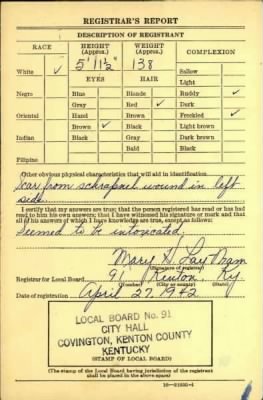 REGISTRAR'S REPORT
DESCRIPTION OF REGISTRANT
RACE HEIGHT (Approx.) WEIGHT (Approx.) COMPLEXION
White ✓ 5' 11½" 138 Sallow
EYES HAIR Light
Negro Blue Blonde Ruddy ✓
Gray Red ✓ Dark
Oriental Hazel Brown Freckled ✓
Brown ✓ Black Light brown
Indian Black Gray Dark brown
Bald Black
Filipino
Other obvious physical characteristics that will aid in identification
Scar from schrapnel wound in left
side.
I certify that my answers are true; that the person registered has read or has had
read to him his own answers; that I have witnessed his signature or mark and that
all of his answers of which I have knowledge are true, except as follows:
Seemed to be intoxicated,
Mary H.
(Signature of registrar)
Registrar for Local Board 91 Kenton, Ky.
(Number) (City or county) (State)
Date of registration April 27, 1942
LOCAL BOARD No. 91
CITY HALL
COVINGTON, KENTON COUNTY
KENTUCKY
(STAMP OF LOCAL BOARD)
(The stamp of the Local Board having jurisdiction of the registrant
shall be placed in the above space)